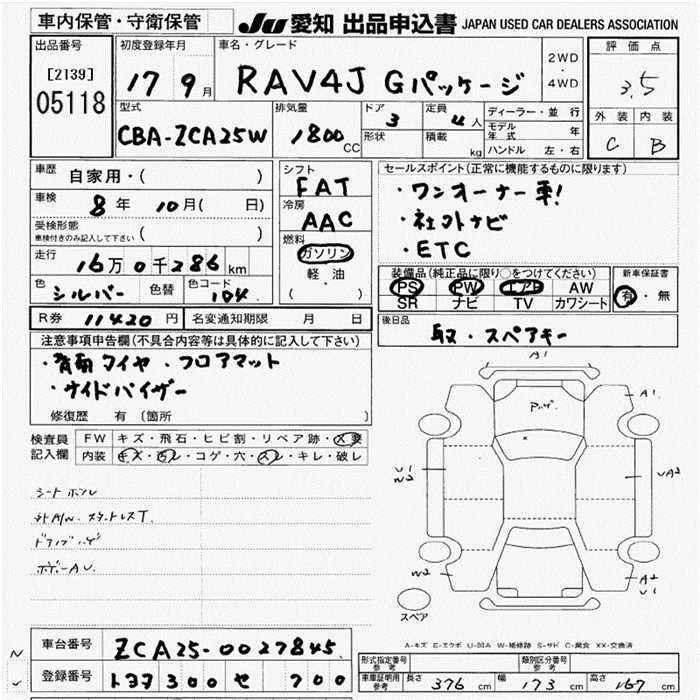 車内保管・守衛保管
JU 愛知 出品申込書 JAPAN USED CAR DEALERS ASSOCIATION
出品番号
[2139]
05118
初度登録年月
17 9月
車名・グレード
RAV4J Gパッケージ
2WD
・
4WD
評価点
3.5
外装 内装
C B
型式
CBA-ZCA25W
排気量
1800 CC
ドア
3
形状
定員
4人
積載
kg
ディーラー・並行
モデル年式 年
ハンドル 左・右
車歴
自家用・( )
車検
8年 10月( 日)
受検形態
車検付きのみ記入して下さい ( )
走行
16万0千286km
色
シルバー
色替
色コード
104
シフト
FAT
冷房
AAC
燃料
ガソリン
・
軽・油
( )
セールスポイント(正常に機能するものに限ります)
・ワンオーナー車!
・社外ナビ
・ETC
装備品(純正品に限り○をつけてください)
PS PW エアB AW
SR ナビ TV カワシート
新車保証書
有・無
R券 11420円
名変通知期限 月 日
後日品
取・スペアキー
注意事項申告欄(不具合内容等は具体的に記入して下さい)
・背面タイヤ・フロアマット
・サイドバイザー
修復歴 有 (箇所 )
検査員
記入欄
FW キズ・飛石・ヒビ割・リペア跡・X要
内装 キズ・汚レ・コゲ・穴・スレ・キレ・破レ
シートヨゴレ
スタッドレスT
ボデーAU
A1
A1
U1
W2
UA2
W2
A2
U1
スペア
A-キズ E-エクボ U-凹み W-補修跡 S-サビ C-腐食 XX-交換済
車台番号 ZCA25-0027845
登録番号 トヨタ 300 せ 700
形式指定番号
参考
類別区分番号
参考
車庫証明用
参考
長さ 376cm 幅 173cm 高さ 167cm